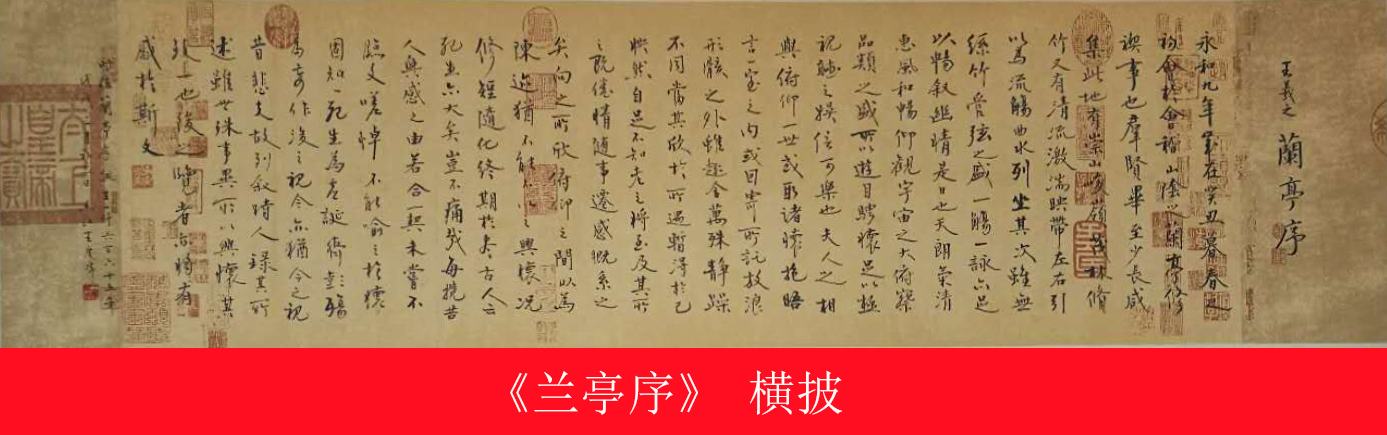 王羲之 蘭亭序
永和九年歲在癸丑暮春之
初會於會稽山陰之蘭亭修
禊事也群賢畢至少長咸
集此地有崇山峻嶺茂林修
竹又有清流激湍映帶左右引
以為流觴曲水列坐其次雖無
絲竹管弦之盛一觴一詠亦足
以暢敘幽情是日也天朗氣清
惠風和暢仰觀宇宙之大俯察
品類之盛所以遊目騁懷足以極
視聽之娛信可樂也夫人之相
與俯仰一世或取諸懷抱晤
言一室之內或因寄所託放浪
形骸之外雖趣舍萬殊靜躁
不同當其欣於所遇暫得於己
快然自足不知老之將至及其所
之既倦情隨事遷感慨系之
矣向之所欣俯仰之間以為
陳迹猶不能不以之興懷況
修短隨化終期於盡古人云
死生亦大矣豈不痛哉每攬昔
人興感之由若合一契未嘗不
臨文嗟悼不能喻之於懷
固知一死生為虛誕齊彭殤
為妄作後之視今亦猶今之視
昔悲夫故列敘時人錄其所
述雖世殊事異所以興懷其
致一也後之覽者亦將有
感於斯文
《兰亭序》 横披